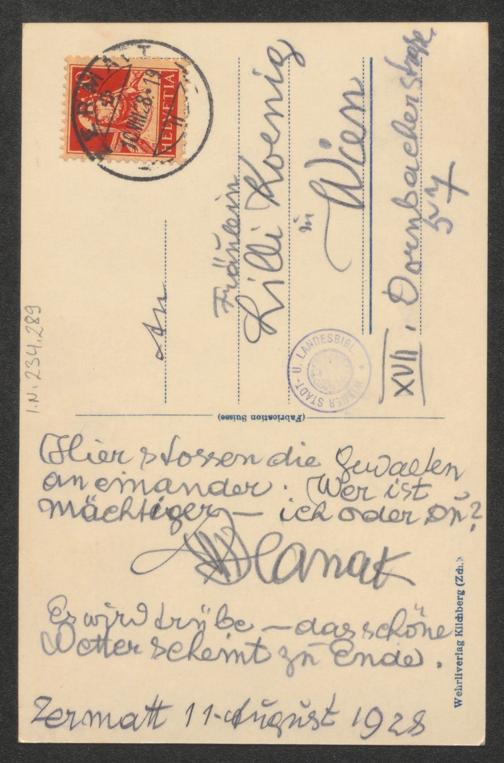 ZERMATT
10.VIII.28-19
HELVETIA
An
Fräulein
Lilli Koenig
in
Wien
XVII. Dornbacherstraße
57
WIENER STADT- U. LANDESBIBL.
I.N. 234.289
(Fabrication Suisse)
Hier stossen die Gewalten
aneinander. Wer ist
mächtiger – ich oder Du?
Hanak
Es wird trübe – das schöne
Wetter scheint zu Ende.
Zermatt 11-August 1928
Wehrliverlag Kilchberg (Zch.)